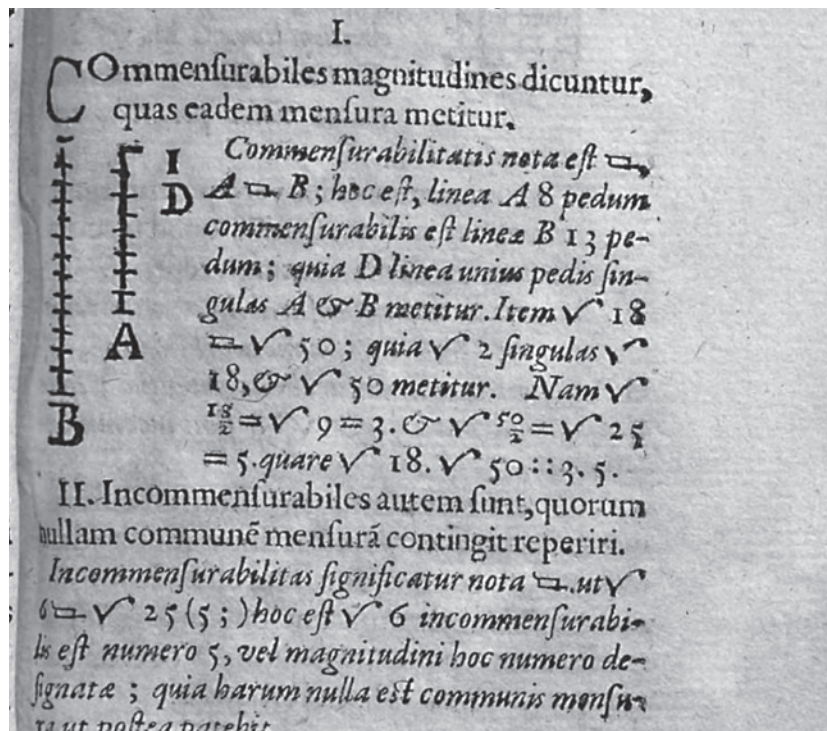 I.
COmmenſurabiles magnitudines dicuntur,
quas eadem menſura metitur.
I
D
A
B
Commenſurabilitatis nota eſt ⫟,
A ⫟ B; hoc eſt, linea A 8 pedum
commenſurabilis eſt lineæ B 13 pe-
dum; quia D linea unius pedis ſin-
gulas A & B metitur. Item √ 18
⫟ √ 50; quia √ 2 ſingulas √
18, & √ 50 metitur. Nam √
18/2 = √ 9 = 3. & √ 50/2 = √ 25
= 5. quare √ 18. √ 50 :: 3. 5.
II. Incommenſurabiles autem ſunt, quorum
nullam communē menſurā contingit reperiri.
Incommenſurabilitas ſignificatur nota ⫠. ut √
6 ⫠ √ 25 (5;) hoc eſt √ 6 incommenſurabi-
lis eſt numero 5, vel magnitudini hoc numero de-
ſignatæ; quia harum nulla est communis menſu-
ra ut poſtea patebit.